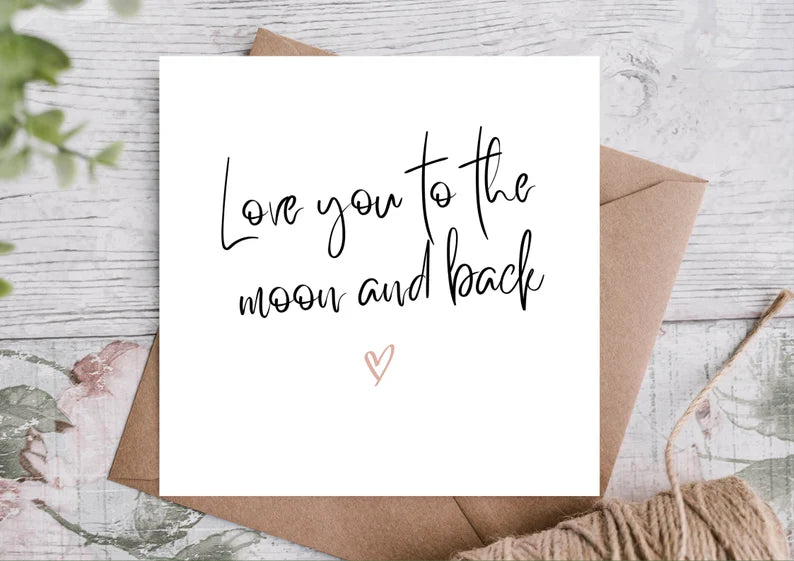 Love you to the
moon and back